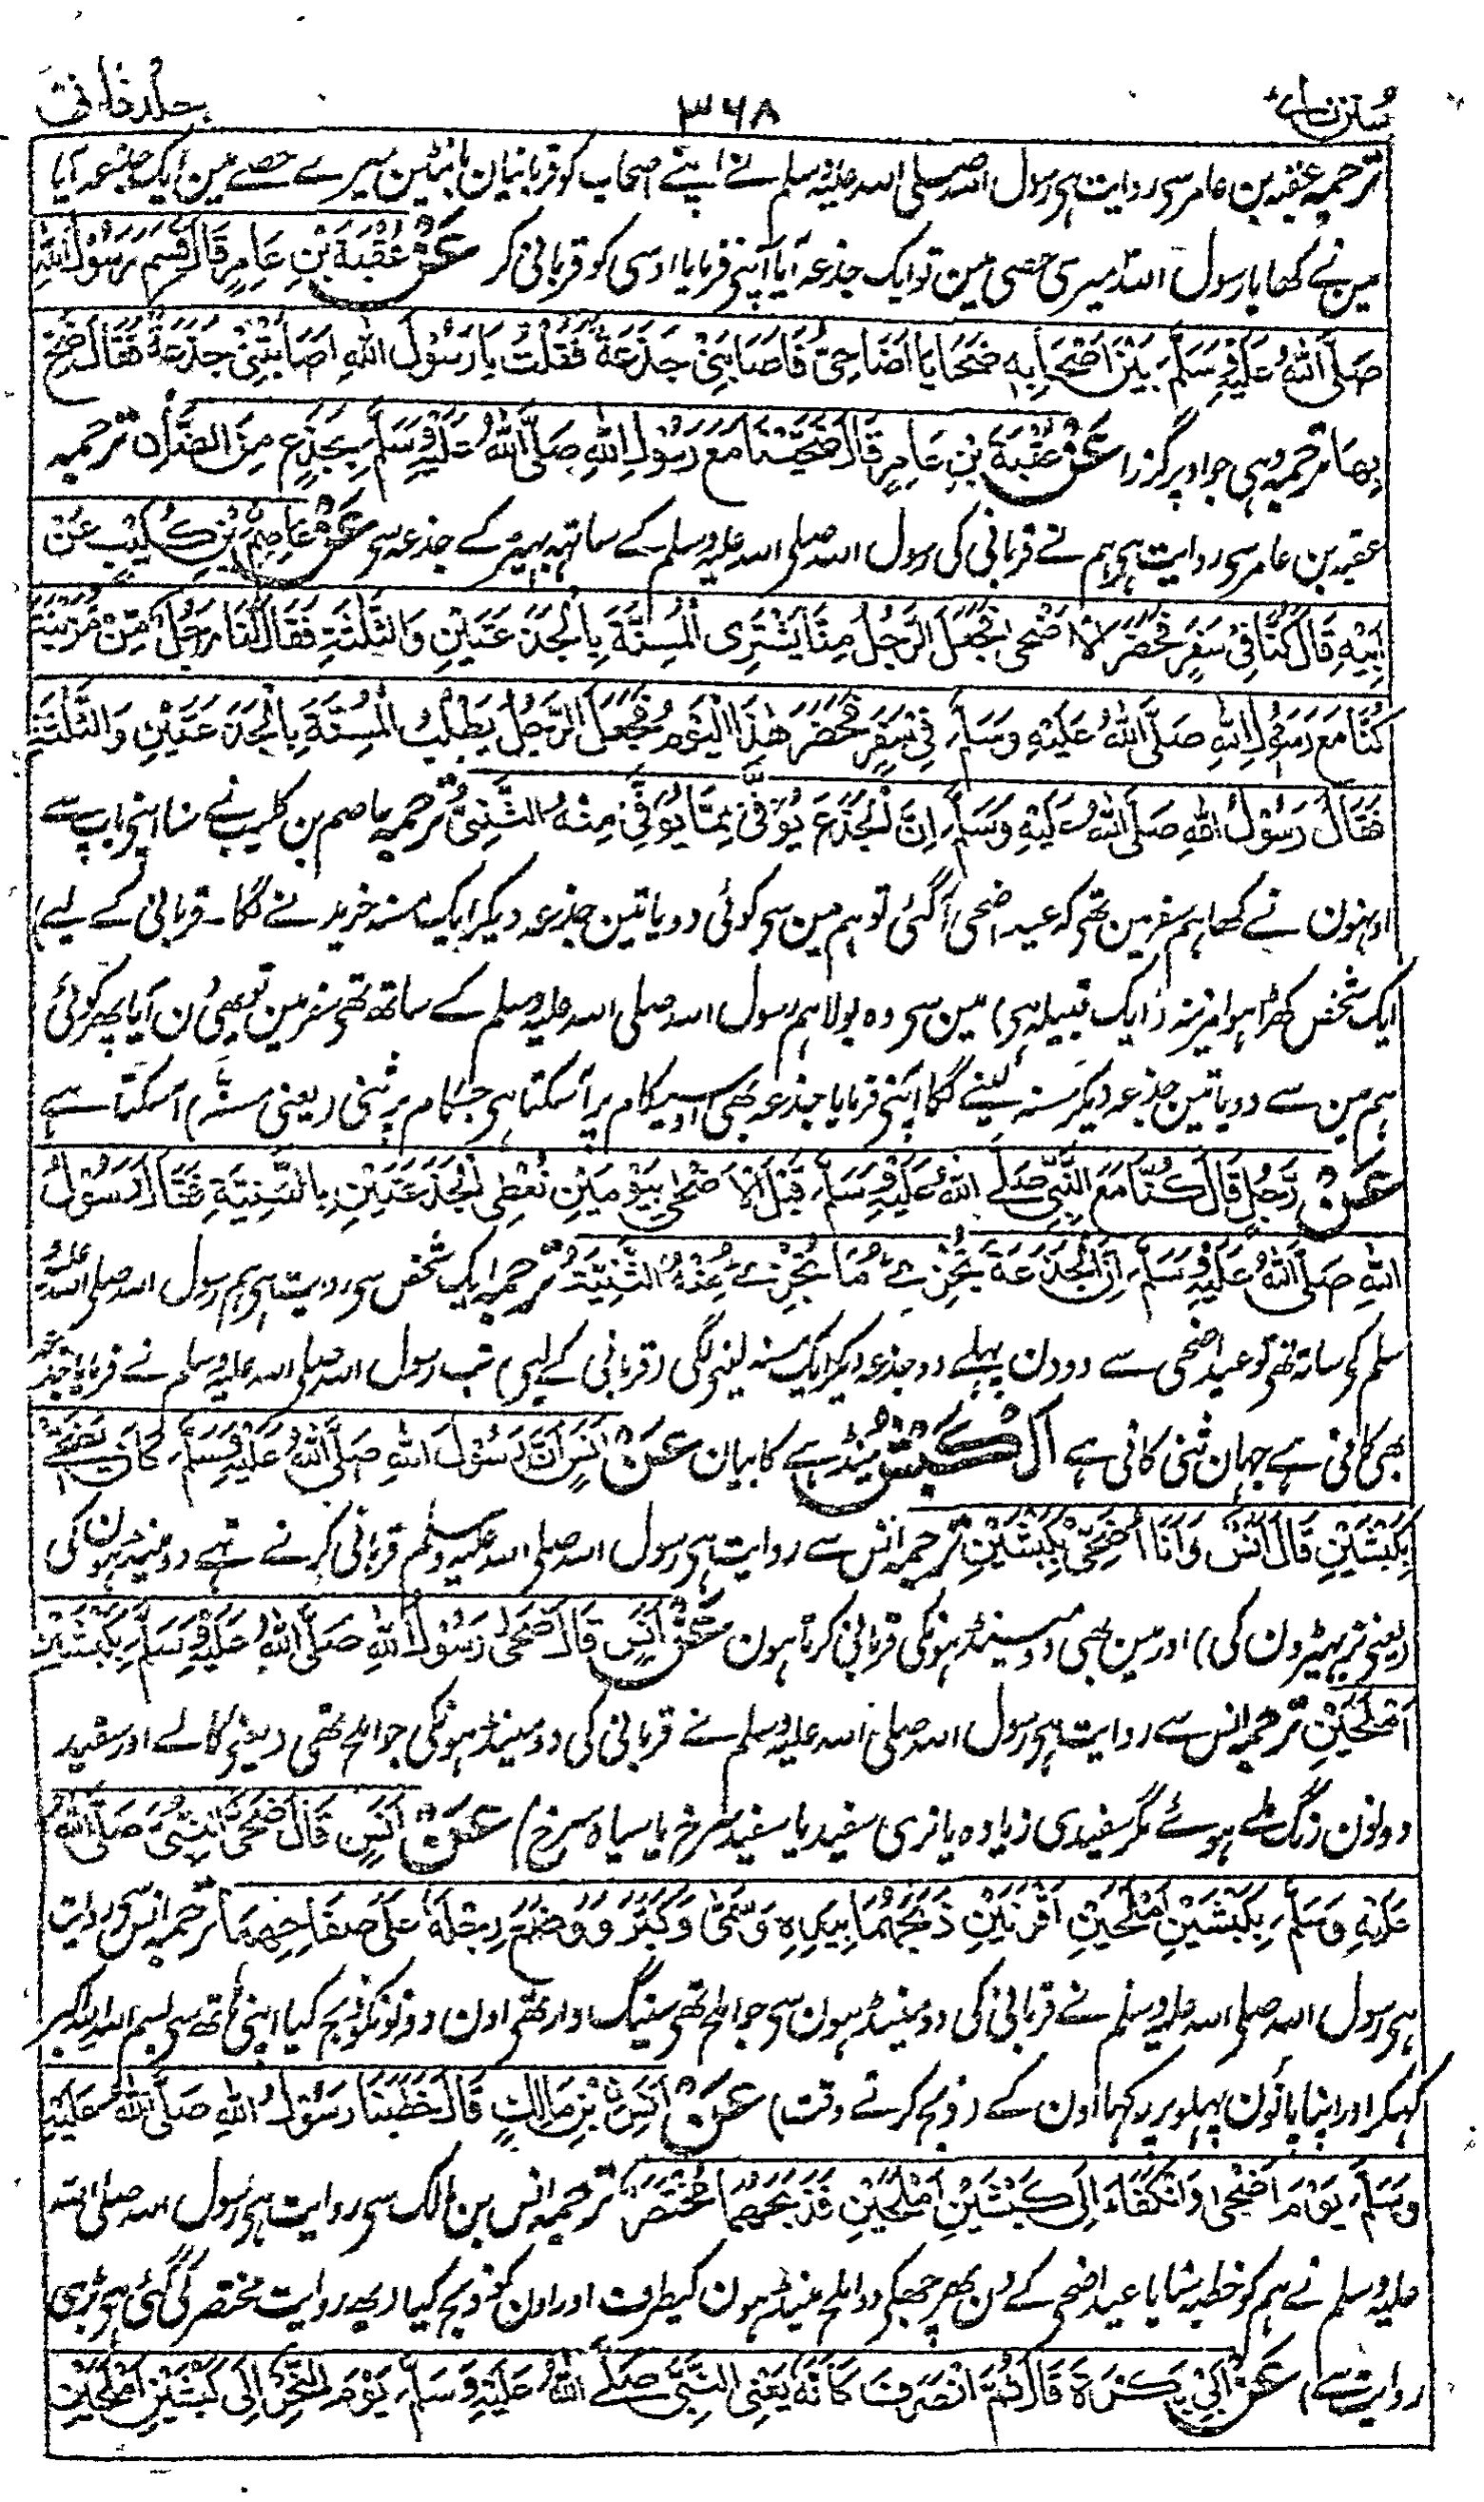 سنن نسائی ۳۶۸ جلد ثانی
ترجمہ عقبہ بن عامر سی روایت ہی رسول اللہ صلی اللہ علیہ وسلم نے اپنے اصحاب کو قربانیان بانٹین میرے حصے مین ایک جذعہ آیا
مین نے کہا یا رسول اللہ میری حصی مین تو ایک جذعہ آیا آپنی فرمایا اوسی کو قربانی کر عَنْ عُقْبَةَ بْنِ عَامِرٍ قَالَ قَسَمَ رَسُوْلُ اللّٰهِ
صَلَّى اللّٰهُ عَلَيْهِ وَسَلَّمَ بَيْنَ اَصْحَابِهٖ ضَحَايَا اَضَاحِيَّ فَاَصَابَنِيْ جَذَعَةٌ فَقُلْتُ يَا رَسُوْلَ اللّٰهِ اَصَابَتْنِيْ جَذَعَةٌ فَقَالَ ضَحِّ
بِهَا ترجمہ وہی جو اوپر گزرا عَنْ عُقْبَةَ بْنِ عَامِرٍ قَالَ ضَحَّيْنَا مَعَ رَسُوْلِ اللّٰهِ صَلَّى اللّٰهُ عَلَيْهِ وَسَلَّمَ بِجَذَعٍ مِنَ الضَّأْنِ ترجمہ
عقبہ بن عامر سی روایت ہی ہم نے قربانی کی رسول اللہ صلی اللہ علیہ وسلم کے ساتہہ بہیڑ کے جذعہ سی عَنْ عَاصِمِ بْنِ كُلَيْبٍ عَنْ
اَبِيْهِ قَالَ كُنَّا فِيْ سَفَرٍ فَحَضَرَ الْاَضْحٰى فَجَعَلَ الرَّجُلُ مِنَّا يَشْتَرِى الْمُسِنَّةَ بِالْجَذَعَتَيْنِ وَالثَّلٰثَةِ فَقَالَ لَنَا رَجُلٌ مِّنْ مُزَيْنَةَ
كُنَّا مَعَ رَسُوْلِ اللّٰهِ صَلَّى اللّٰهُ عَلَيْهِ وَسَلَّمَ فِيْ سَفَرٍ فَحَضَرَ هٰذَا الْيَوْمُ فَجَعَلَ الرَّجُلُ يَطْلُبُ الْمُسِنَّةَ بِالْجَذَعَتَيْنِ وَالثَّلٰثَةِ
فَقَالَ رَسُوْلُ اللّٰهِ صَلَّى اللّٰهُ عَلَيْهِ وَسَلَّمَ اِنَّ الْجَذَعَ يُوَفِّيْ مِمَّا يُوَفِّيْ مِنْهُ الثَّنِيُّ ترجمہ عاصم بن کلیب نے سنا اپنی باپ سے
اونہون نے کہا ہم سفر مین تھی کہ عید اضحی آ گئی تو ہم مین سی کوئی دو یا تین جذعہ دیکر ایک مسنہ خریدنے لگا۔ قربانی کے لیے)
ایک شخص کھڑا ہوا مزینہ (ایک قبیلہ ہی) مین سی وہ بولا ہم رسول اللہ صلی اللہ علیہ وسلم کے ساتھ تھی سفر مین تو یہی دن آیا پھر کوئی
ہم مین سے دو یا تین جذعہ دیکر مسنہ لینے لگا آپنی فرمایا جذعہ بھی اوسیکام پر آسکتا ہی جسکام پر ثنی (یعنی مسنہ) آسکتا ہے
عَنْ رَجُلٍ قَالَ كُنَّا مَعَ النَّبِيِّ صَلَّى اللّٰهُ عَلَيْهِ وَسَلَّمَ قَبْلَ الْاَضْحٰى بِيَوْمَيْنِ نُعْطِى الْجَذَعَتَيْنِ بِالثَّنِيَّةِ فَقَالَ رَسُوْلُ
اللّٰهِ صَلَّى اللّٰهُ عَلَيْهِ وَسَلَّمَ اِنَّ الْجَذَعَةَ تُجْزِئُ مَا تُجْزِئُ مِنْهُ الثَّنِيَّةُ ترجمہ ایک شخص سی روایت ہی ہم رسول اللہ صلی اللہ علیہ
سلم کی ساتھ تھی تو عید اضحی سے دو دن پہلے دو جذعہ دیکر ایک مسنہ لینی لگی (قربانی کے لیی) تب رسول اللہ صلی اللہ علیہ وسلم نے فرمایا جذعہ
بھی کافی ہے جہان ثنی کافی ہے اَلْكَبْشُ مینڈہے کا بیان عَنْ اَنَسٍ اَنَّ رَسُوْلَ اللّٰهِ صَلَّى اللّٰهُ عَلَيْهِ وَسَلَّمَ كَانَ يُضَحِّيْ
بِكَبْشَيْنِ قَالَ اَنَسٌ وَاَنَا اُضَحِّيْ بِكَبْشَيْنِ ترجمہ انس سے روایت ہی رسول اللہ صلی اللہ علیہ وسلم قربانی کرتے تہے دو مینڈہون کی
(یعنی نر بہیڑون کی) اور مین بھی دو مینڈہونکی قربانی کرتا ہون عَنْ اَنَسٍ قَالَ ضَحّٰى رَسُوْلُ اللّٰهِ صَلَّى اللّٰهُ عَلَيْهِ وَسَلَّمَ بِكَبْشَيْنِ
اَمْلَحَيْنِ ترجمہ انس سے روایت ہی رسول اللہ صلی اللہ علیہ وسلم نے قربانی کی دو مینڈہونکی جو املح تھی (یعنی کالے اور سفید
دونون رنگ ملے ہوئے مگر سفیدی زیادہ یا نری سفید یا سفید سرخ یا سیاہ سرخ) عَنْ اَنَسٍ قَالَ ضَحَّى النَّبِيُّ صَلَّى اللّٰهُ
عَلَيْهِ وَسَلَّمَ بِكَبْشَيْنِ اَمْلَحَيْنِ اَقْرَنَيْنِ ذَبَحَهُمَا بِيَدِهٖ وَسَمّٰى وَكَبَّرَ وَوَضَعَ رِجْلَهٗ عَلٰى صِفَاحِهِمَا ترجمہ انس سی روایت
ہی رسول اللہ صلی اللہ علیہ وسلم نے قربانی کی دو مینڈہون سی جو املح تھی سینگ دار تھی اون دونونکو ذبح کیا اپنی ہاتھ سی بسم اللہ اللہ اکبر
کہکر اور اپنا پانون پہلو پر رکہا اون کے (ذبح کرتے وقت) عَنْ اَنَسِ بْنِ مَالِكٍ قَالَ خَطَبَنَا رَسُوْلُ اللّٰهِ صَلَّى اللّٰهُ عَلَيْهِ
وَسَلَّمَ يَوْمَ اَضْحٰى وَانْكَفَاَ اِلٰى كَبْشَيْنِ اَمْلَحَيْنِ فَذَبَحَهُمَا مُخْتَصَرٌ ترجمہ انس بن مالک سی روایت ہی رسول اللہ صلی اللہ
علیہ وسلم نے ہم کو خطبہ سنایا عید اضحی کے دن پھر جھکے دو املح مینڈہون کیطرف اور اون کو ذبح کیا (یہ روایت مختصر کی گئی ہی بڑی
روایت سے) عَنْ اَبِيْ بَكْرَةَ قَالَ ثُمَّ انْصَرَفَ كَاَنَّهٗ يَعْنِى النَّبِيَّ صَلَّى اللّٰهُ عَلَيْهِ وَسَلَّمَ يَوْمَ النَّحْرِ اِلٰى كَبْشَيْنِ اَمْلَحَيْنِ